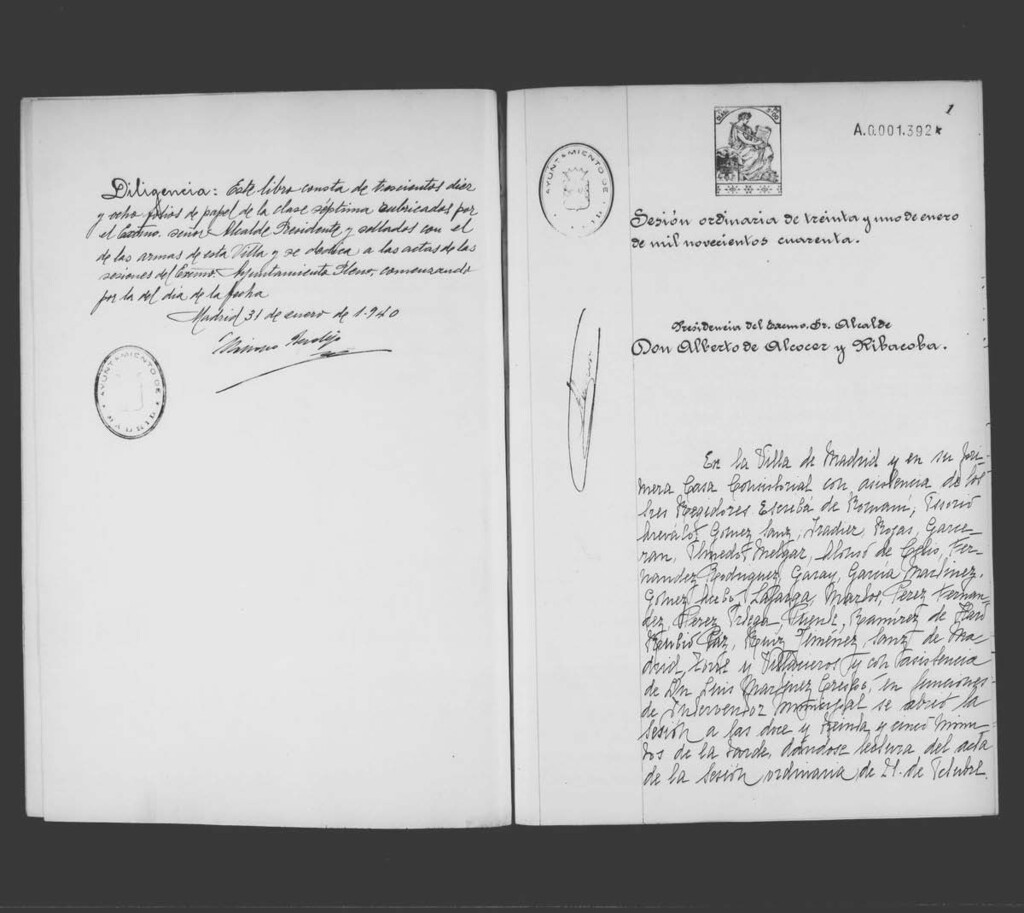 Diligencia: Este libro consta de trescientos diez
y ocho folios de papel de la clase séptima rubricados por
el Excmo. señor Alcalde Presidente y sellados con el
de las armas de esta Villa y se dedica a las actas de las
sesiones del Excmo. Ayuntamiento Pleno, comenzando
por la del dia de la fecha
Madrid 31 de enero de 1.940
AYUNTAMIENTO DE
MADRID
1
A.0.001.392*
AYUNTAMIENTO DE
MADRID
Sesión ordinaria de treinta y uno de enero
de mil novecientos cuarenta.
Presidencia del Excmo. Sr. Alcalde
Don Alberto de Alcocer y Ribacoba.
En la Villa de Madrid y en su pri-
mera Casa Consistorial con asistencia de los
Sres Regidores Escribá de Romaní, Tesorio
Arevalo, Gomez Sanz, Iradier, Rojas, Garce-
ran, Olmedo, Melgar, Alonso de Celis, Fer-
nandez Rodriguez, Garay, García Martinez,
Gomez Lafarga, Marlos, Perez Fernan-
dez, Perez Ortega, Puente, Ramírez de
Rubio Paz, Ruiz Jiménez, Sanz de Ma
drid, Torre y y con asistencia
de Dn Luis Martinez Crespo, en funciones
de Interventor municipal se abrió la
sesión a las doce y treinta y cinco minu-
tos de la tarde, dándose lectura del acta
de la sesión ordinaria de 21 de